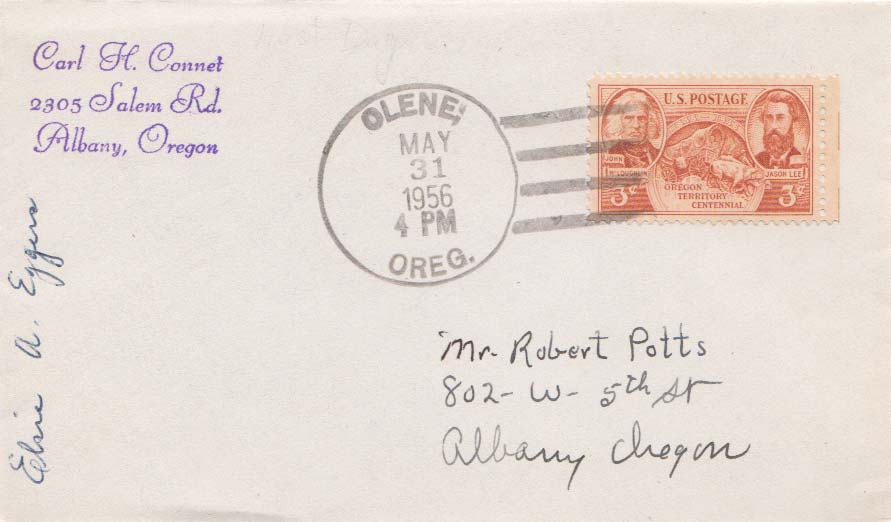 Carl H. Connet
2305 Salem Rd.
Albany, Oregon
OLENE,
MAY
31
1956
4 PM
OREG.
U.S. POSTAGE
JOHN
McLOUGHLIN
JASON LEE
OREGON
TERRITORY
CENTENNIAL
3¢
3¢
Elsie A. Eggers
Mr. Robert Potts
802-W-5th St
Albany Oregon